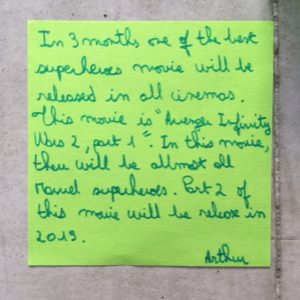 In 3 months one of the best
superheroes movie will be
released in all cinemas.
This movie is "Avenger Infinity
Wars 2, part 1". In this movie,
there will be allmost all
Marvel superheroes. Part 2 of
this movie will be release in
2019.
Arthur